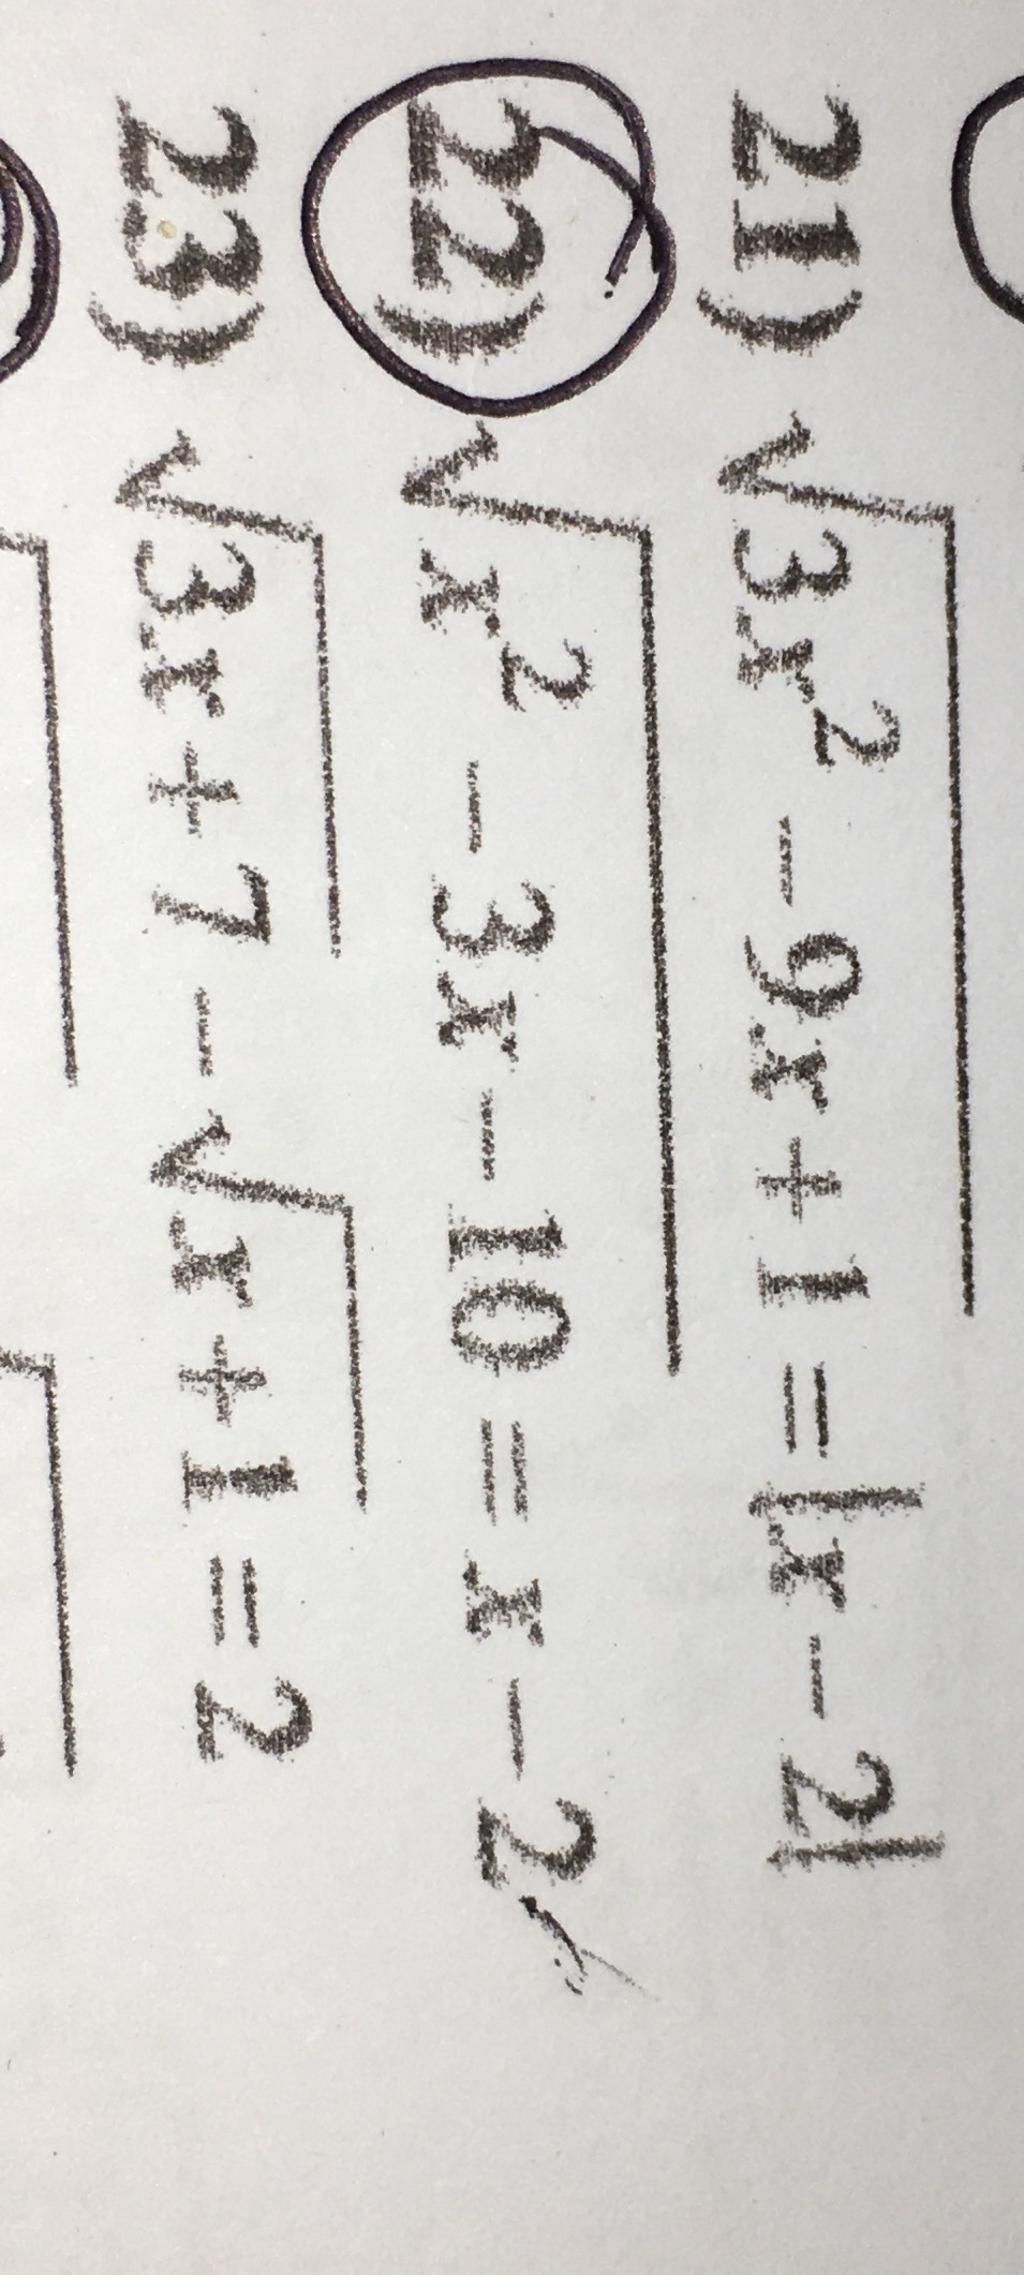 21) √3x² - 9x + 1 = |x - 2|
22) √x² - 3x - 10 = x - 2
23) √3x + 7 - √x + 1 = 2